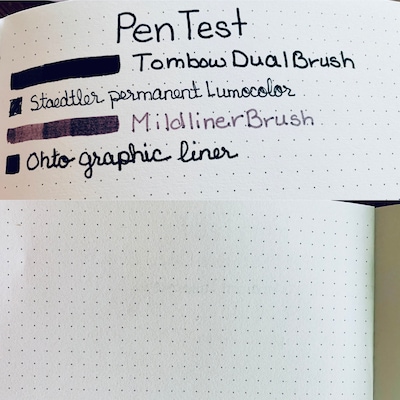 Pen Test
Tombow Dual Brush
Staedtler permanent Lumocolor
Mildliner Brush
Ohto graphic liner